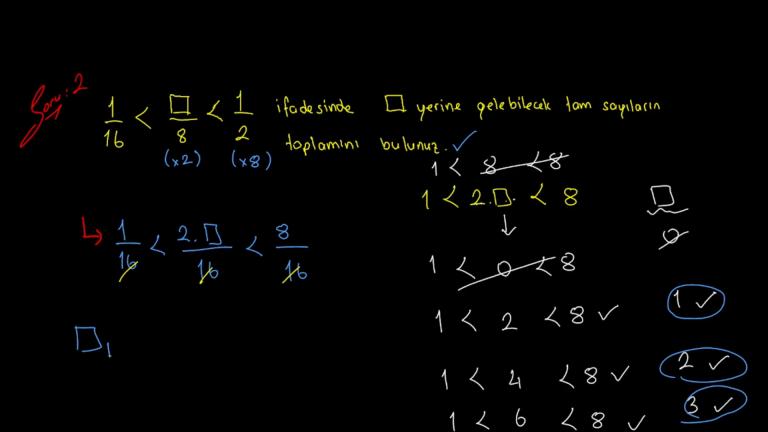 Soru: 2
1/16 < □/8 < 1/2 ifadesinde □ yerine gelebilecek tam sayıların
(x2) (x8) toplamını bulunuz. ✓
1 < 8 < 8
1 < 2.□. < 8 □
↓ 0
↳ 1/16 < 2.□/16 < 8/16
1 < 0 < 8
1 < 2 < 8 ✓ 1 ✓
□,
1 < 4 < 8 ✓ 2 ✓
1 < 6 < 8 ✓ 3 ✓